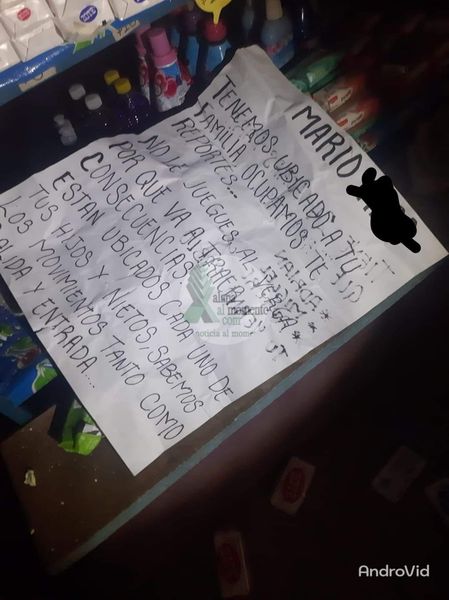 MARIO
TENEMOS UBICADO A TU
FAMILIA OCUPAMOS TE
REPORTES...
NO LE JUEGUES AL *VERGA*
POR QUE VA A TRAER
CONSECUENCIAS
ESTAN UBICADOS CADA UNO DE
TUS HIJOS Y NIETOS, SABEMOS
LOS MOVIMIENTOS TANTO COMO
SALIDA Y ENTRADA...
al momento
.com
noticia al mome
AndroVid